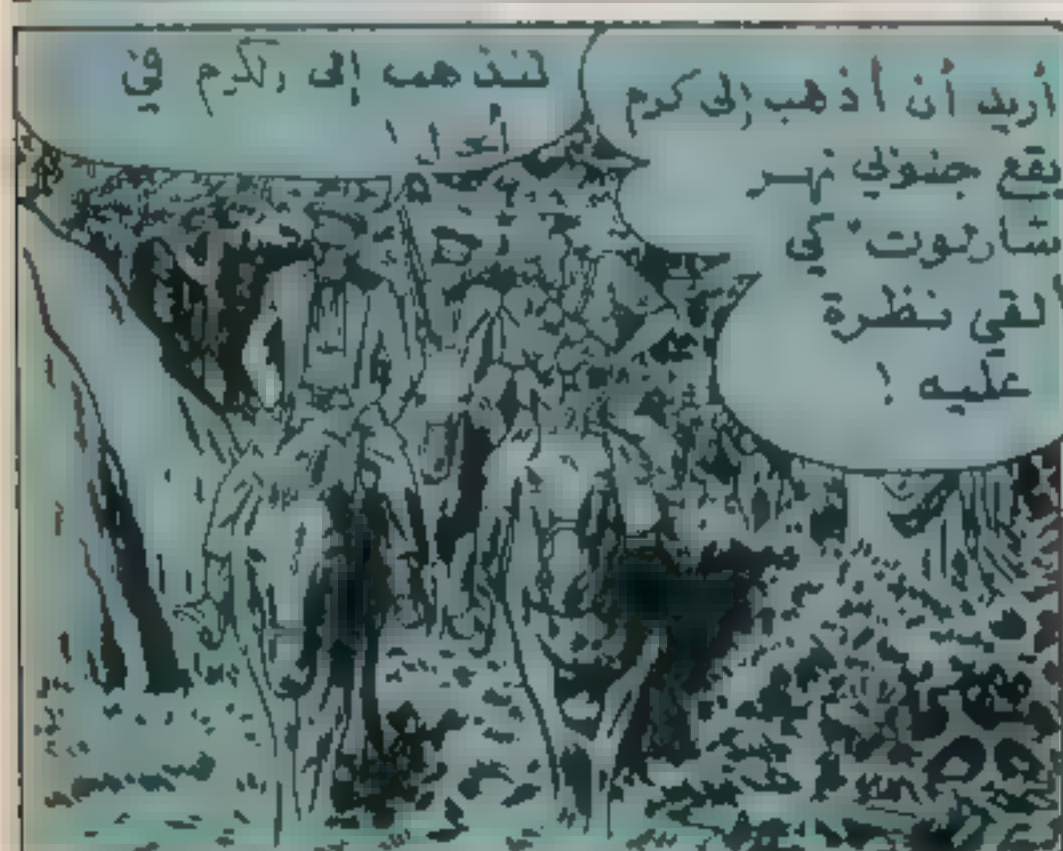 أريد أن أذهب إلى كرم
يقع جنوبي نهر
"شارنوت" كي
ألقي نظرة
عليه !
لنذهب إلى الكرم في
الحال !